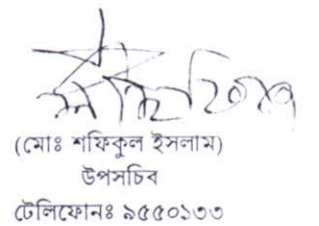 (মোঃ শফিকুল ইসলাম)
উপসচিব
টেলিফোনঃ ৯৫৫০১৩৩